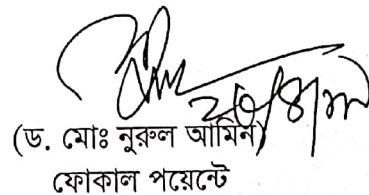 (ড. মোঃ নুরুল আমিন)
ফোকাল পয়েন্টে